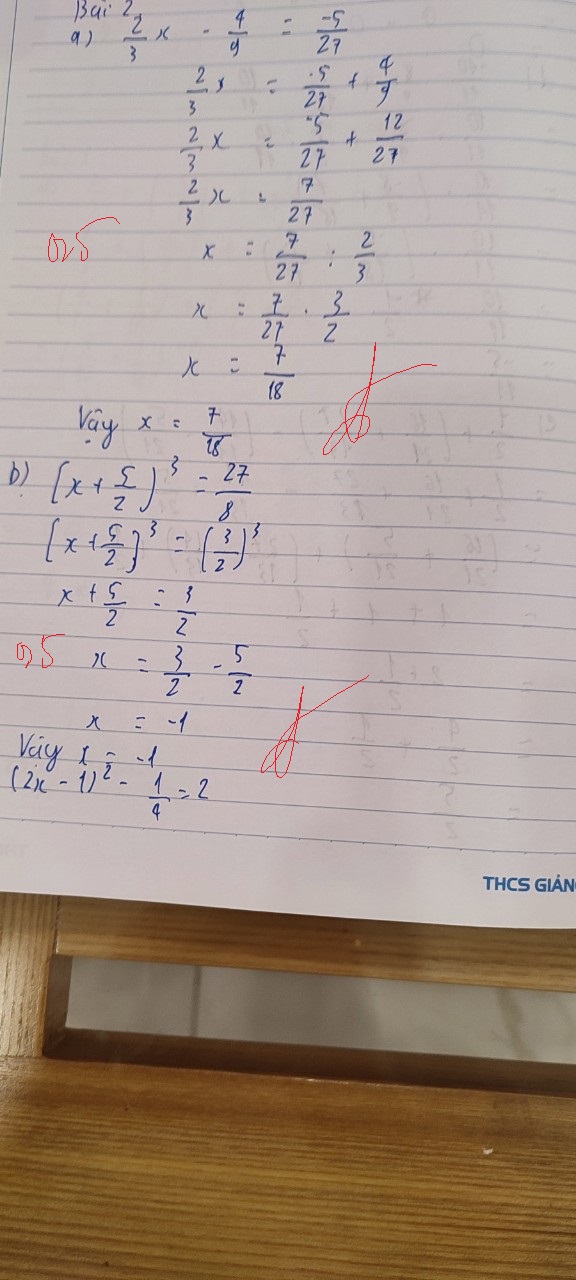 Bài 2
a) 2/3 x - 4/9 = -5/27
2/3 x = -5/27 + 4/9
2/3 x = -5/27 + 12/27
2/3 x = 7/27
0,5
x = 7/27 : 2/3
x = 7/27 . 3/2
x = 7/18
Vậy x = 7/18
b) (x + 5/2)^3 = 27/8
(x + 5/2)^3 = (3/2)^3
x + 5/2 = 3/2
0,5 x = 3/2 - 5/2
x = -1
Vậy x = -1
(2x - 1)^2 - 1/4 = 2
THCS GIẢN